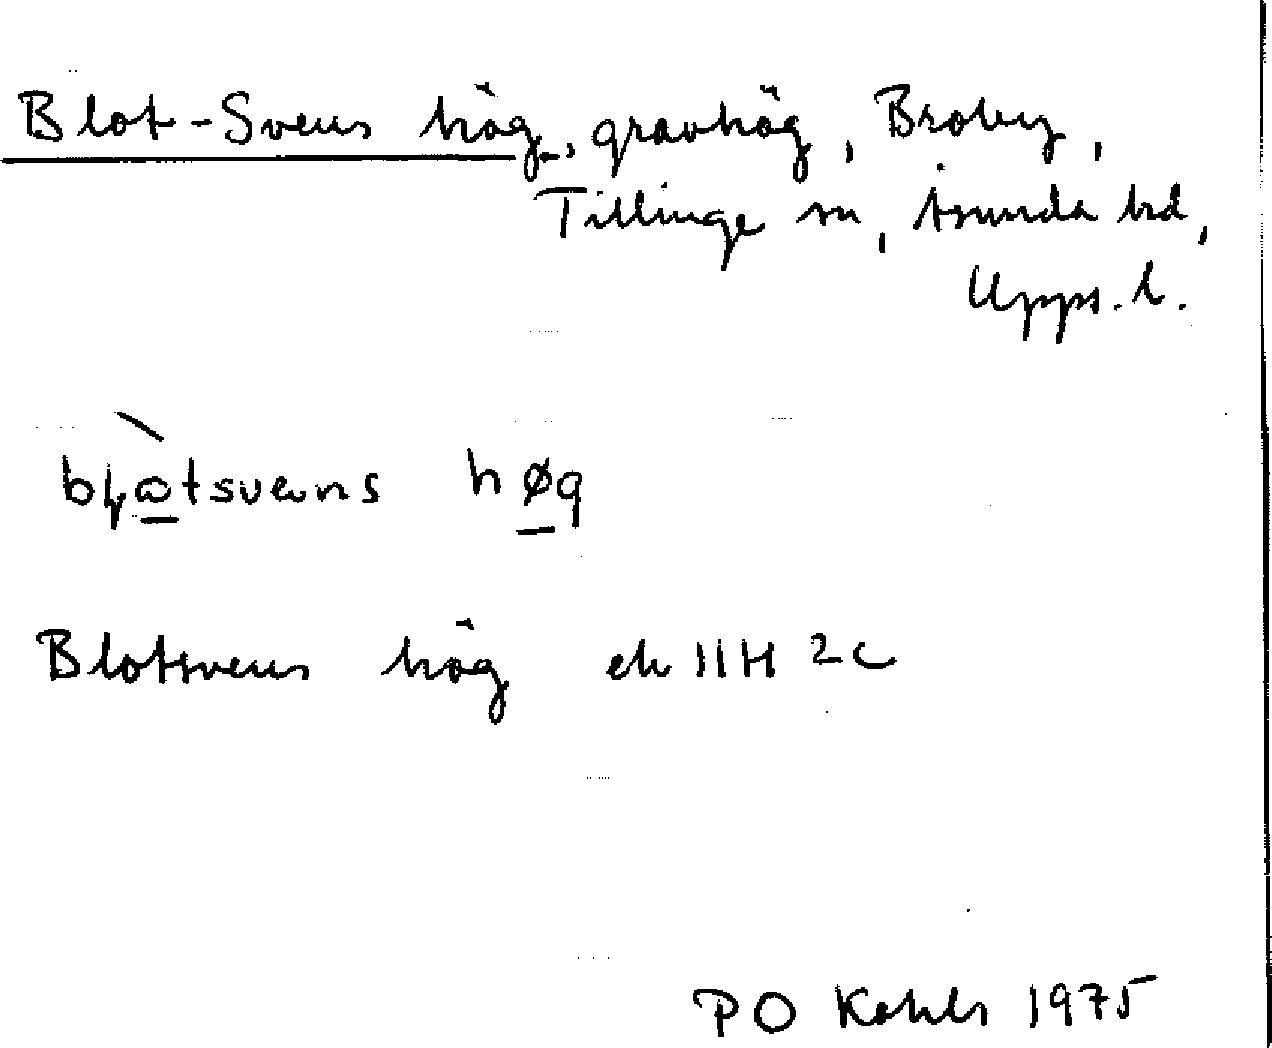 Blot-Svens hög, gravhög, Broby,
Tillinge sn, Åsunda hd,
Upps. l.
høg
Blotsvens hög ek 11H 2c
PO 1975